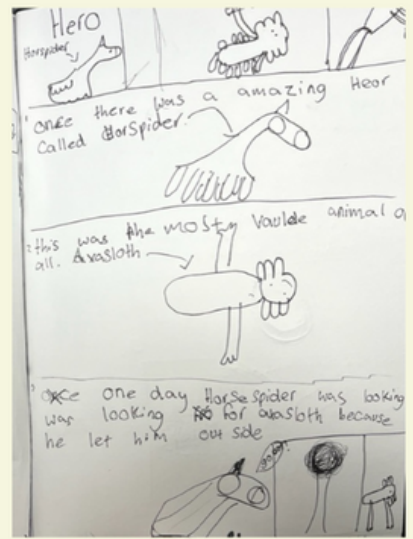 Hero
Horspider
once there was a amazing Heor
called HorSpider.
this was the most vaulde animal o
all. avasloth
one day Horsespider was looking
was looking for avasloth because
he let him out side